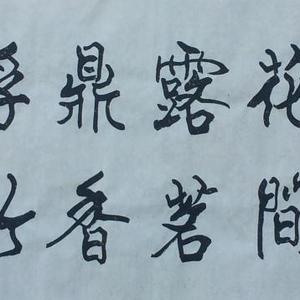 花間
露茗
鼎香